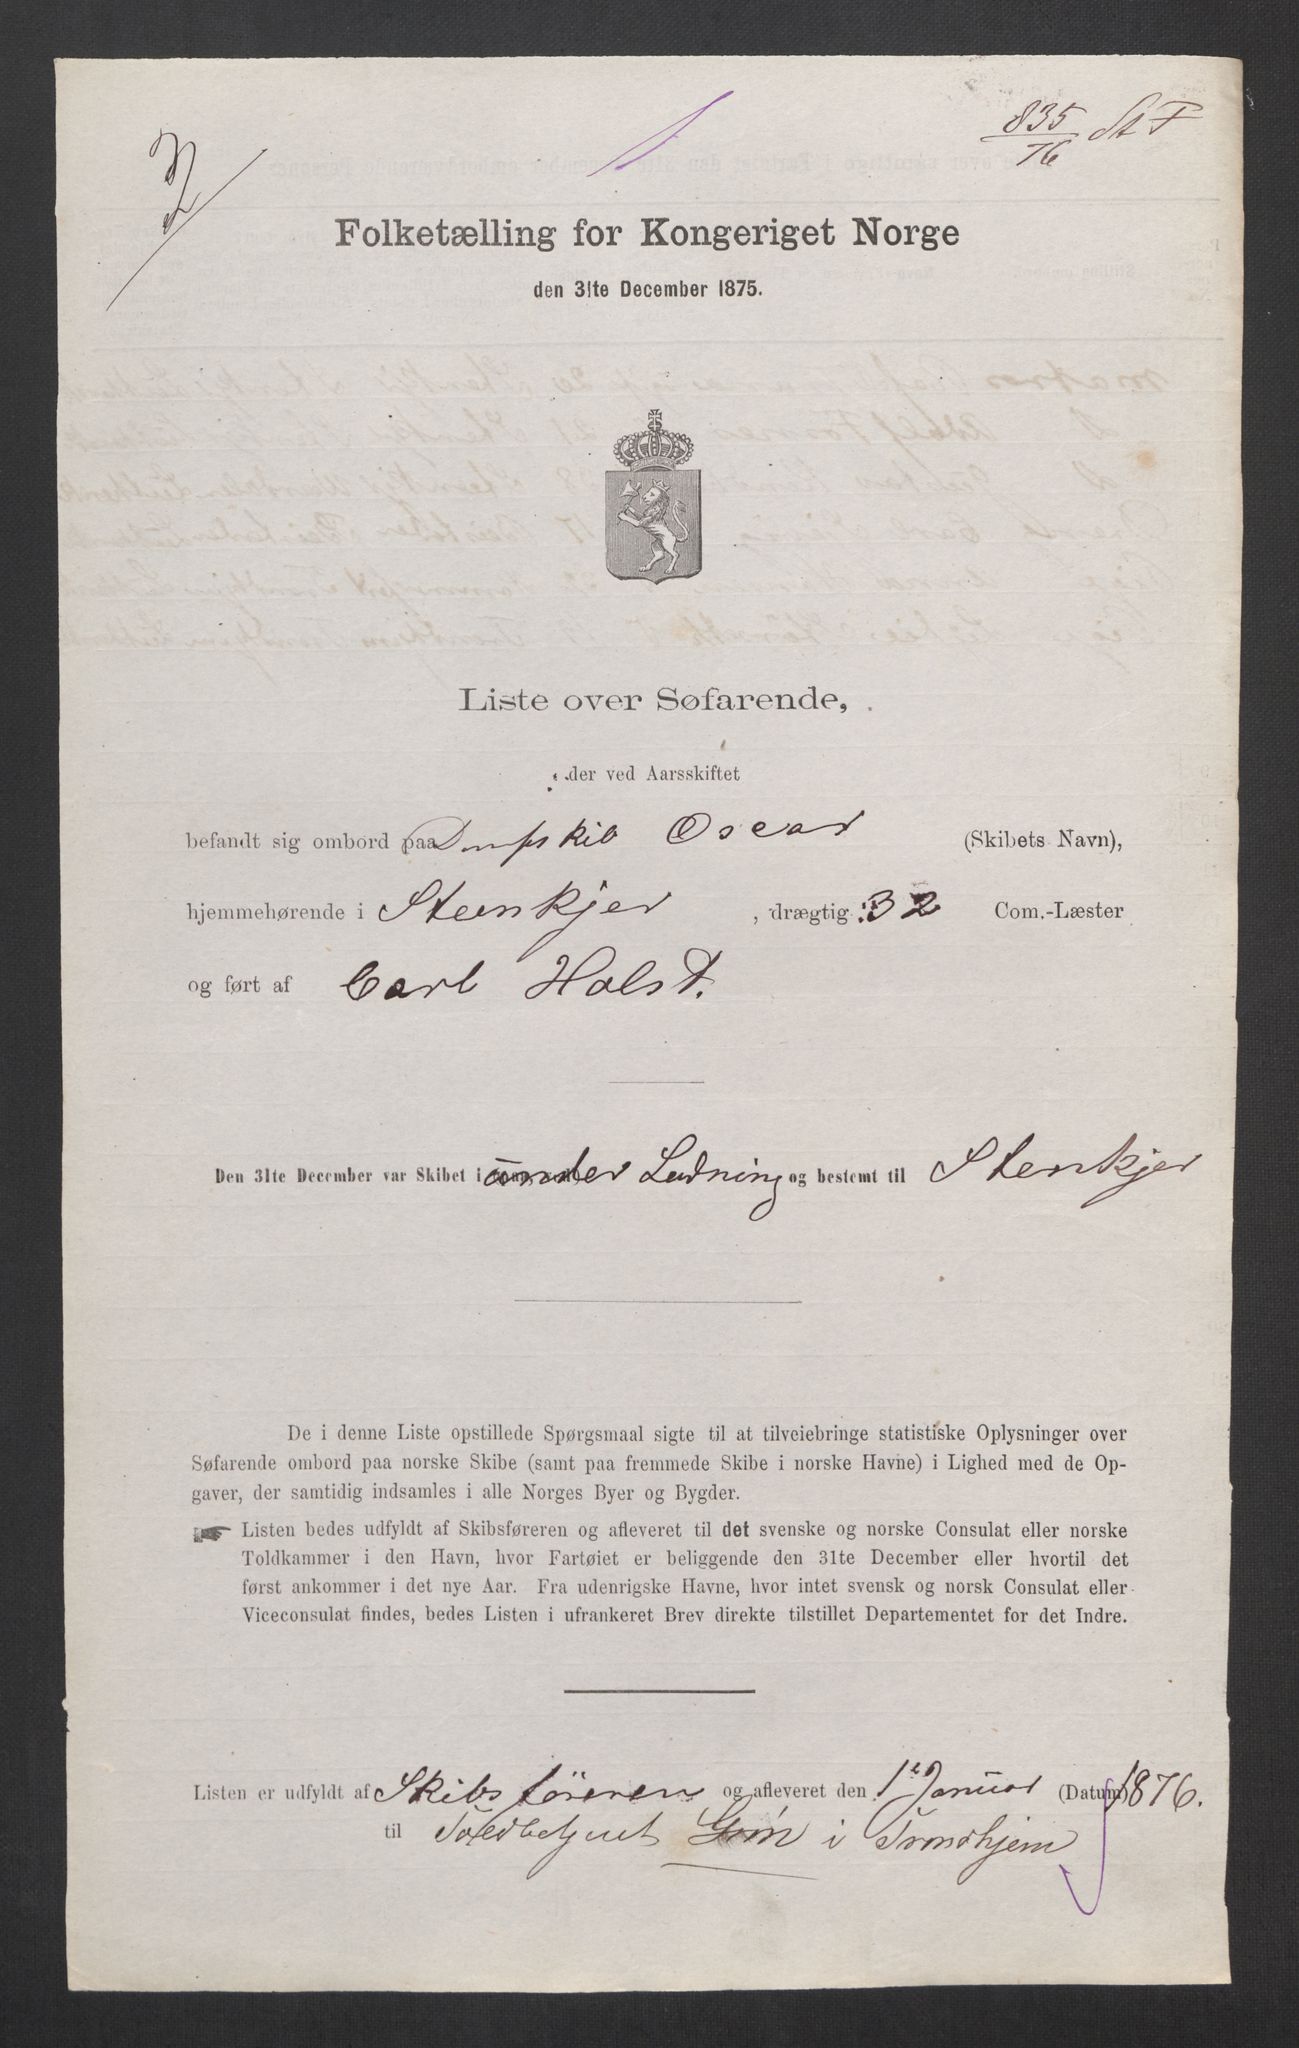 835/76 St F
Folketælling for Kongeriget Norge
den 31te December 1875.
Liste over Søfarende,
der ved Aarsskiftet
befandt sig ombord paa Dampskib Oscar (Skibets Navn),
hjemmehørende i Steenkjer , drægtig 32 Com.-Læster
og ført af Carl Holst.
Den 31te December var Skibet i under Ladning og bestemt til Stenkjer
De i denne Liste opstillede Spørgsmaal sigte til at tilveiebringe statistiske Oplysninger over
Søfarende ombord paa norske Skibe (samt paa fremmede Skibe i norske Havne) i Lighed med de Op-
gaver, der samtidig indsamles i alle Norges Byer og Bygder.
Listen bedes udfyldt af Skibsføreren og afleveret til det svenske og norske Consulat eller norske
Toldkammer i den Havn, hvor Fartøiet er beliggende den 31te December eller hvortil det
først ankommer i det nye Aar. Fra udenrigske Havne, hvor intet svensk og norsk Consulat eller
Viceconsulat findes, bedes Listen i ufrankeret Brev direkte tilstillet Departementet for det Indre.
Listen er udfyldt af Skibsföreren og afleveret den 1te Januar (Datum) 1876.
til Toldbetjent i Trondhjem